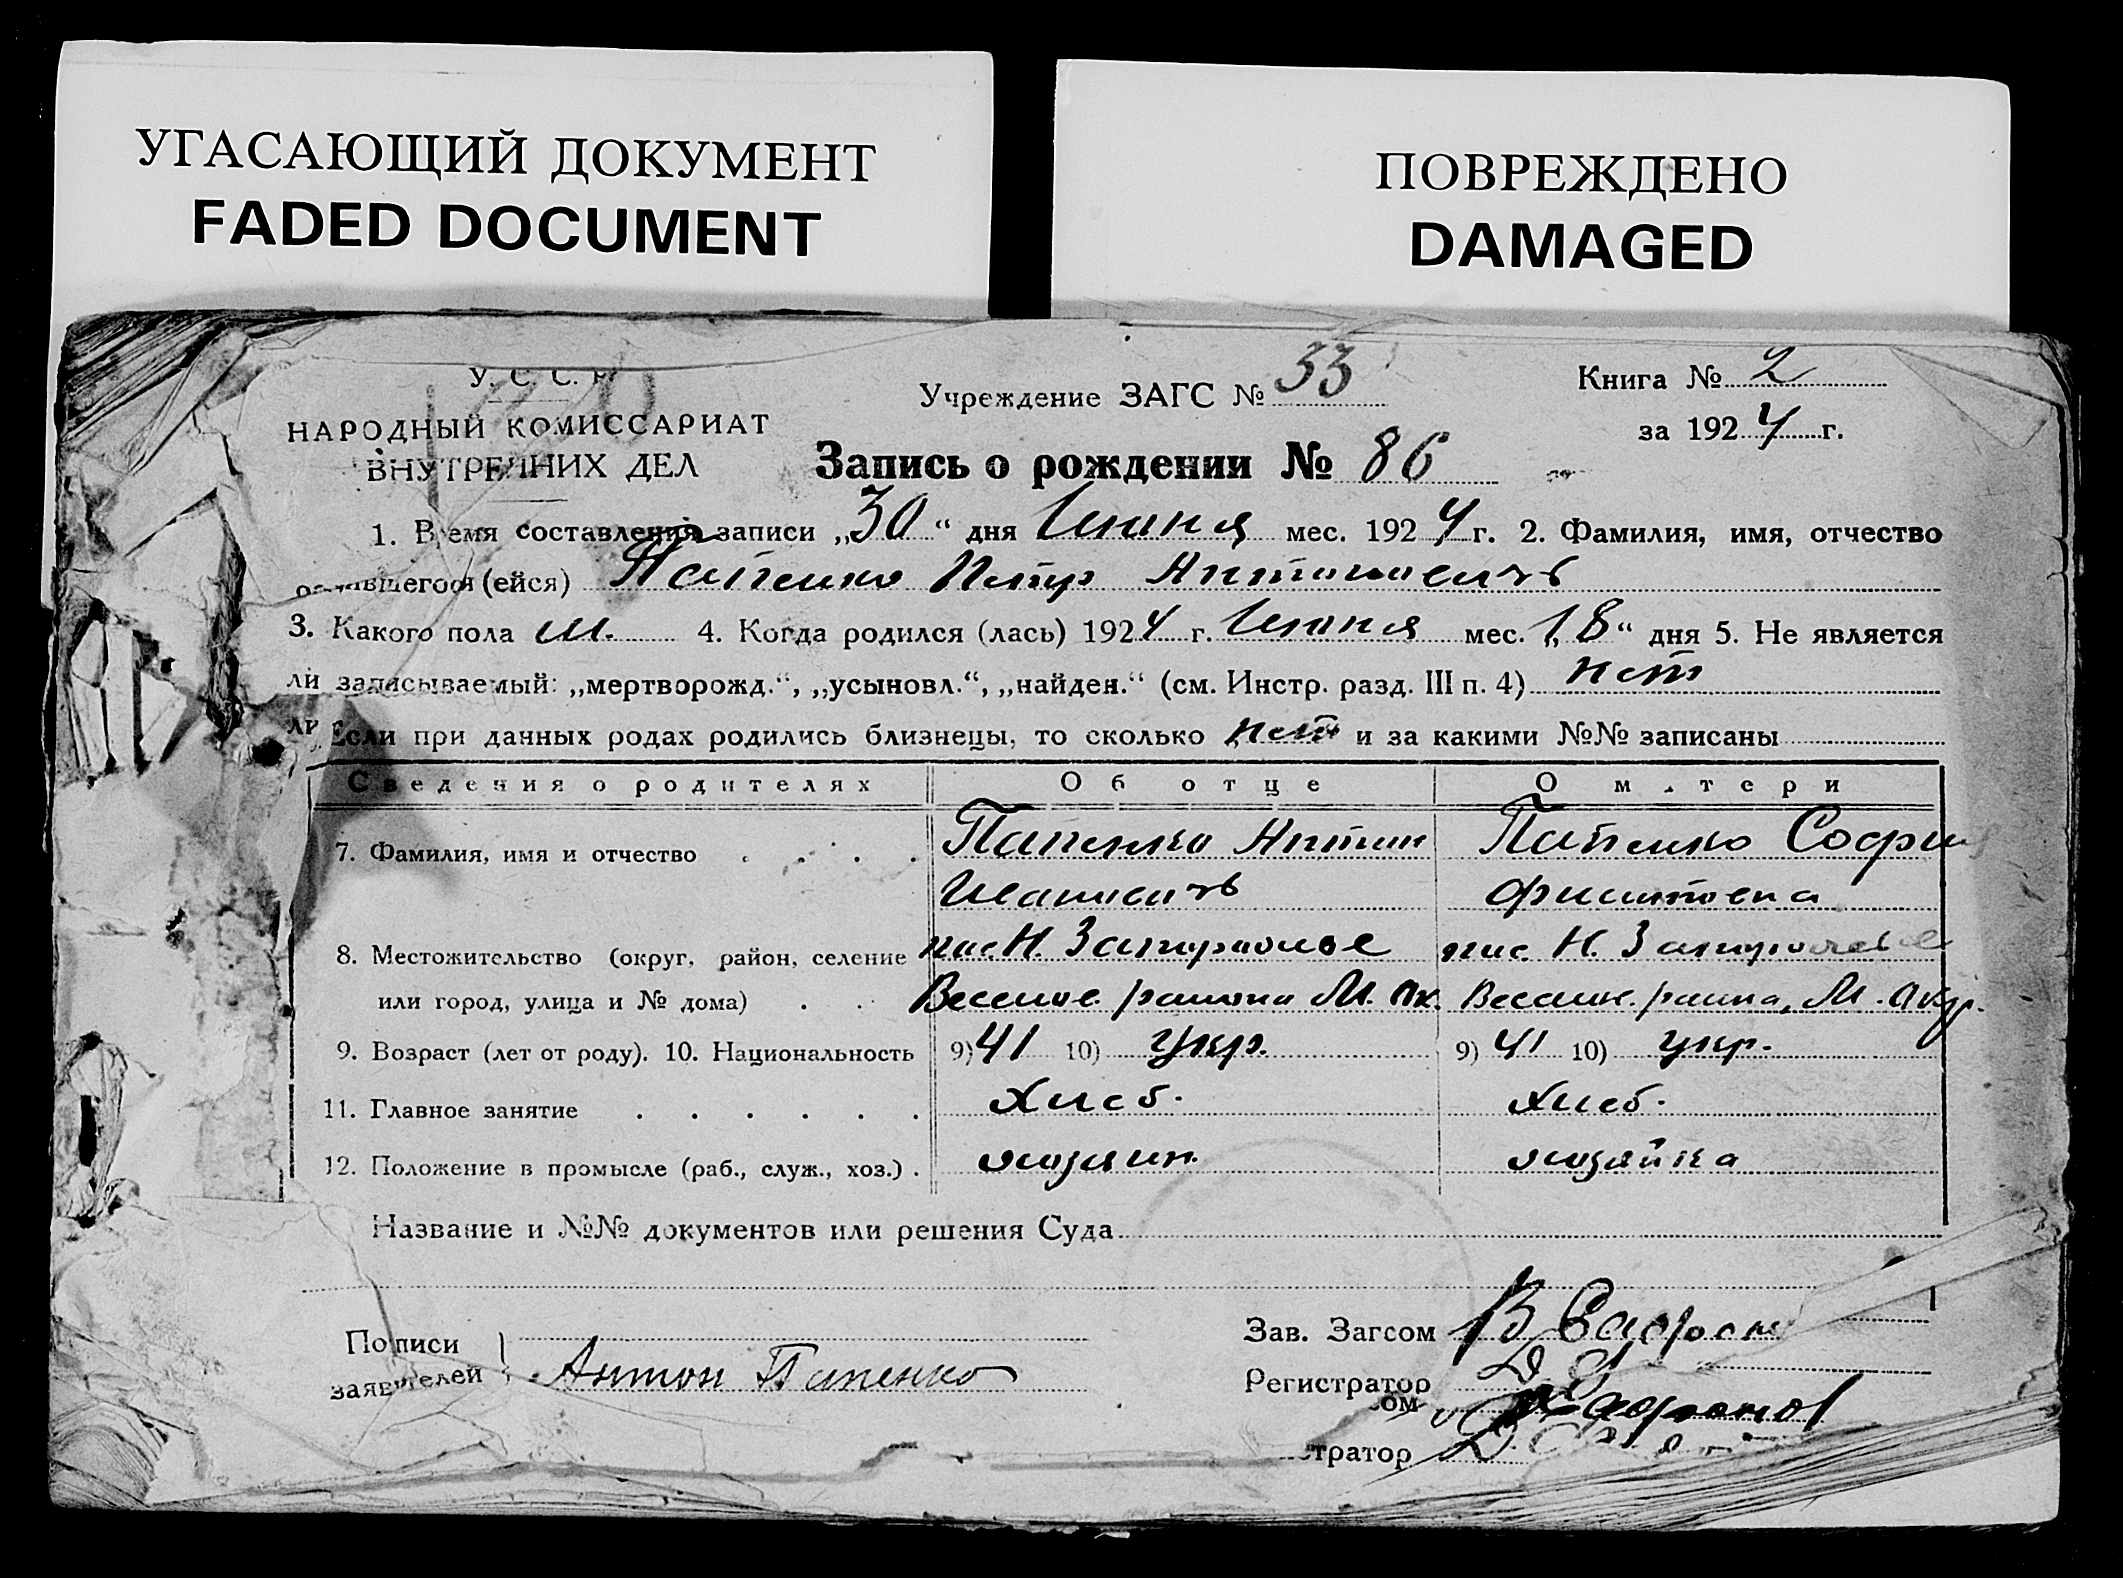 УГАСАЮЩИЙ ДОКУМЕНТ
FADED DOCUMENT
ПОВРЕЖДЕНО
DAMAGED
У. С. С. Р.
НАРОДНЫЙ КОМИССАРИАТ
ВНУТРЕННИХ ДЕЛ
Учреждение ЗАГС № 33
Книга № 2
за 1924 г.
Запись о рождении № 86
1. Время составления записи „30“ дня Июня мес. 1924 г. 2. Фамилия, имя, отчество
родившегося (ейся) Папенко Петр Антонович
3. Какого пола м. 4. Когда родился (лась) 1924 г. Июня мес. „18“ дня 5. Не является
ли записываемый: „мертворожд.“, „усыновл.“, „найден.“ (см. Инстр. разд. III п. 4) нет
Если при данных родах родились близнецы, то сколько нет и за какими №№ записаны
Сведения о родителях Об отце О матери
7. Фамилия, имя и отчество Папенко Антон Папенко София
8. Местожительство (округ, район, селение пос. Н. Запорожье пос. Н. Запорожье
или город, улица и № дома) района М. ок. М. окр.
9. Возраст (лет от роду). 10. Национальность 9) 41 10) укр. 9) 41 10) укр.
11. Главное занятие Хлеб. Хлеб.
12. Положение в промысле (раб., служ., хоз.) хозяин хозяйка
Название и №№ документов или решения Суда
Подписи
заявителей Антон Папенко
Зав. Загсом
Регистратор
ом
тратор